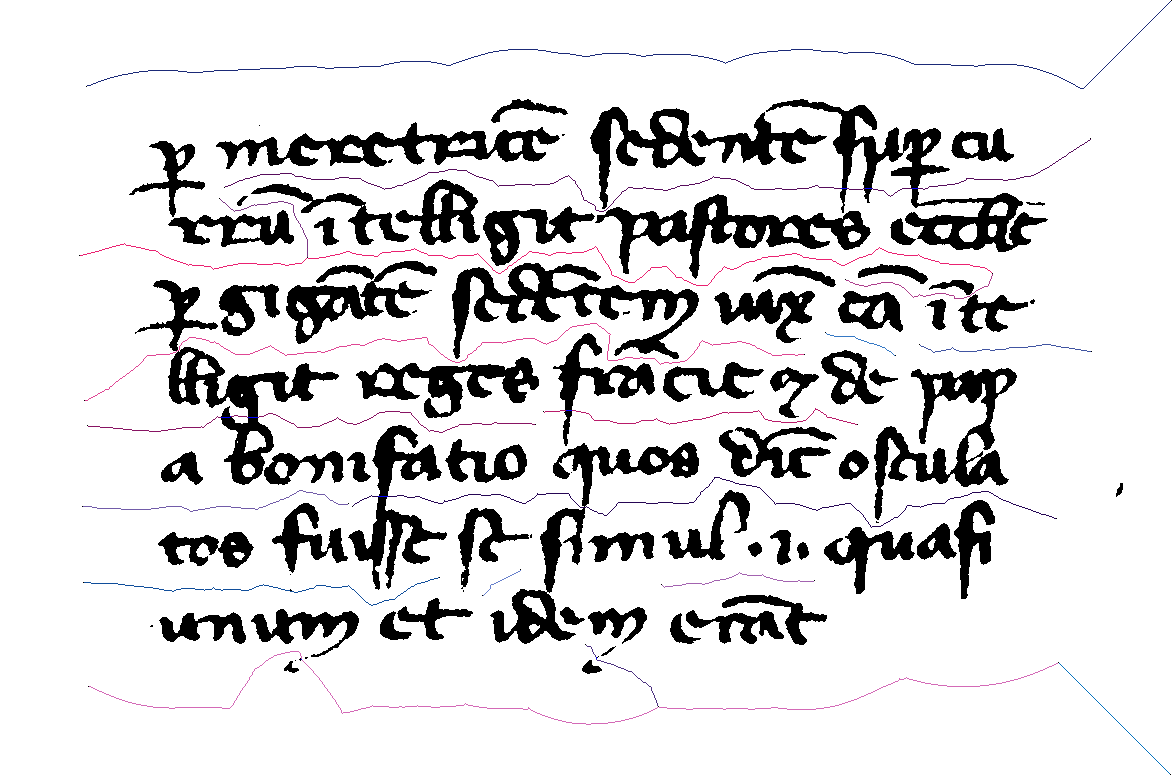 ꝑ meretricē sedentē suꝑ cu
rrū ītelligit pastores eccl̄ie
ꝑ gigātē sedētem iuxͣ eā īte
lligit reges frācie ⁊ de pap
a bonifatio quos dīc oscula
tos fuisse sē simul .i. quasi
unum et idem erāt